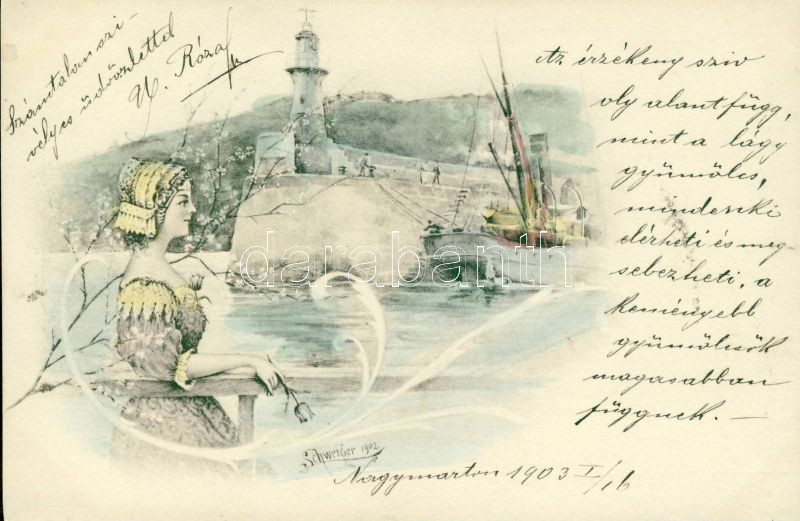 Számtalan szi-
vélyes üdvözlettel
U. Róza
Az érzékeny sziv
oly alant függ,
mint a lágy
gyümölcs,
mindenki
elérheti és meg
sebezheti, a
keményebb
gyümölcsök
magasabban
függnek. –
darabanth
Schweiger 1902
Nagymarton 1903 I/16